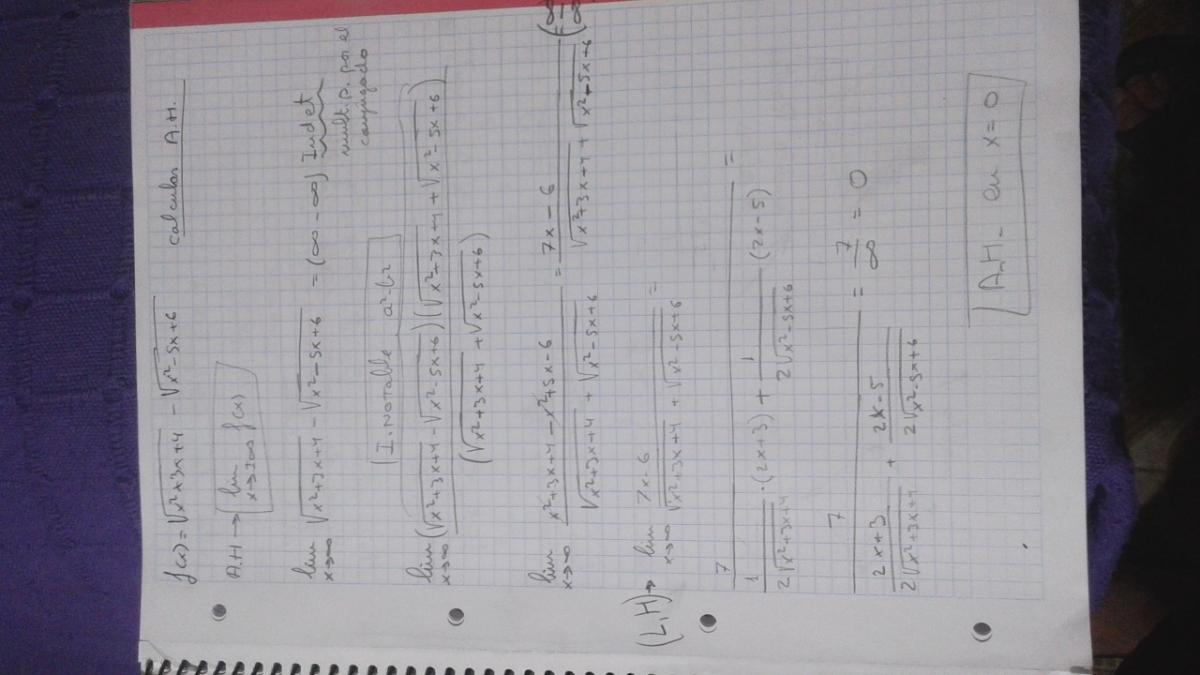 f(x) = √(x²x3x+4) - √(x²-5x+6) calcular A.H.
A.H → lim x→±∞ f(x)
lim x→∞ √(x²+3x+4) - √(x²-5x+6) = (∞-∞) Indet
multip. por el
conjugado
I. Notable a²-b²
lim x→∞ (√(x²+3x+4) - √(x²-5x+6)) (√(x²+3x+4) + √(x²-5x+6)) / (√(x²+3x+4) + √(x²-5x+6))
lim x→∞ (x²+3x+4-x²+5x-6) / (√(x²+3x+4) + √(x²-5x+6)) = (7x-6) / (√(x²+3x+4) + √(x²-5x+6)) = (∞/∞)
(L'H) → lim x→∞ (7x-6) / (√(x²+3x+4) + √(x²-5x+6)) =
7 / (1/(2√(x²+3x+4)) · (2x+3) + 1/(2√(x²-5x+6)) (2x-5)) =
7 / ((2x+3)/(2√(x²+3x+4)) + (2x-5)/(2√(x²-5x+6))) = 7/∞ = 0
A.H- en x=0